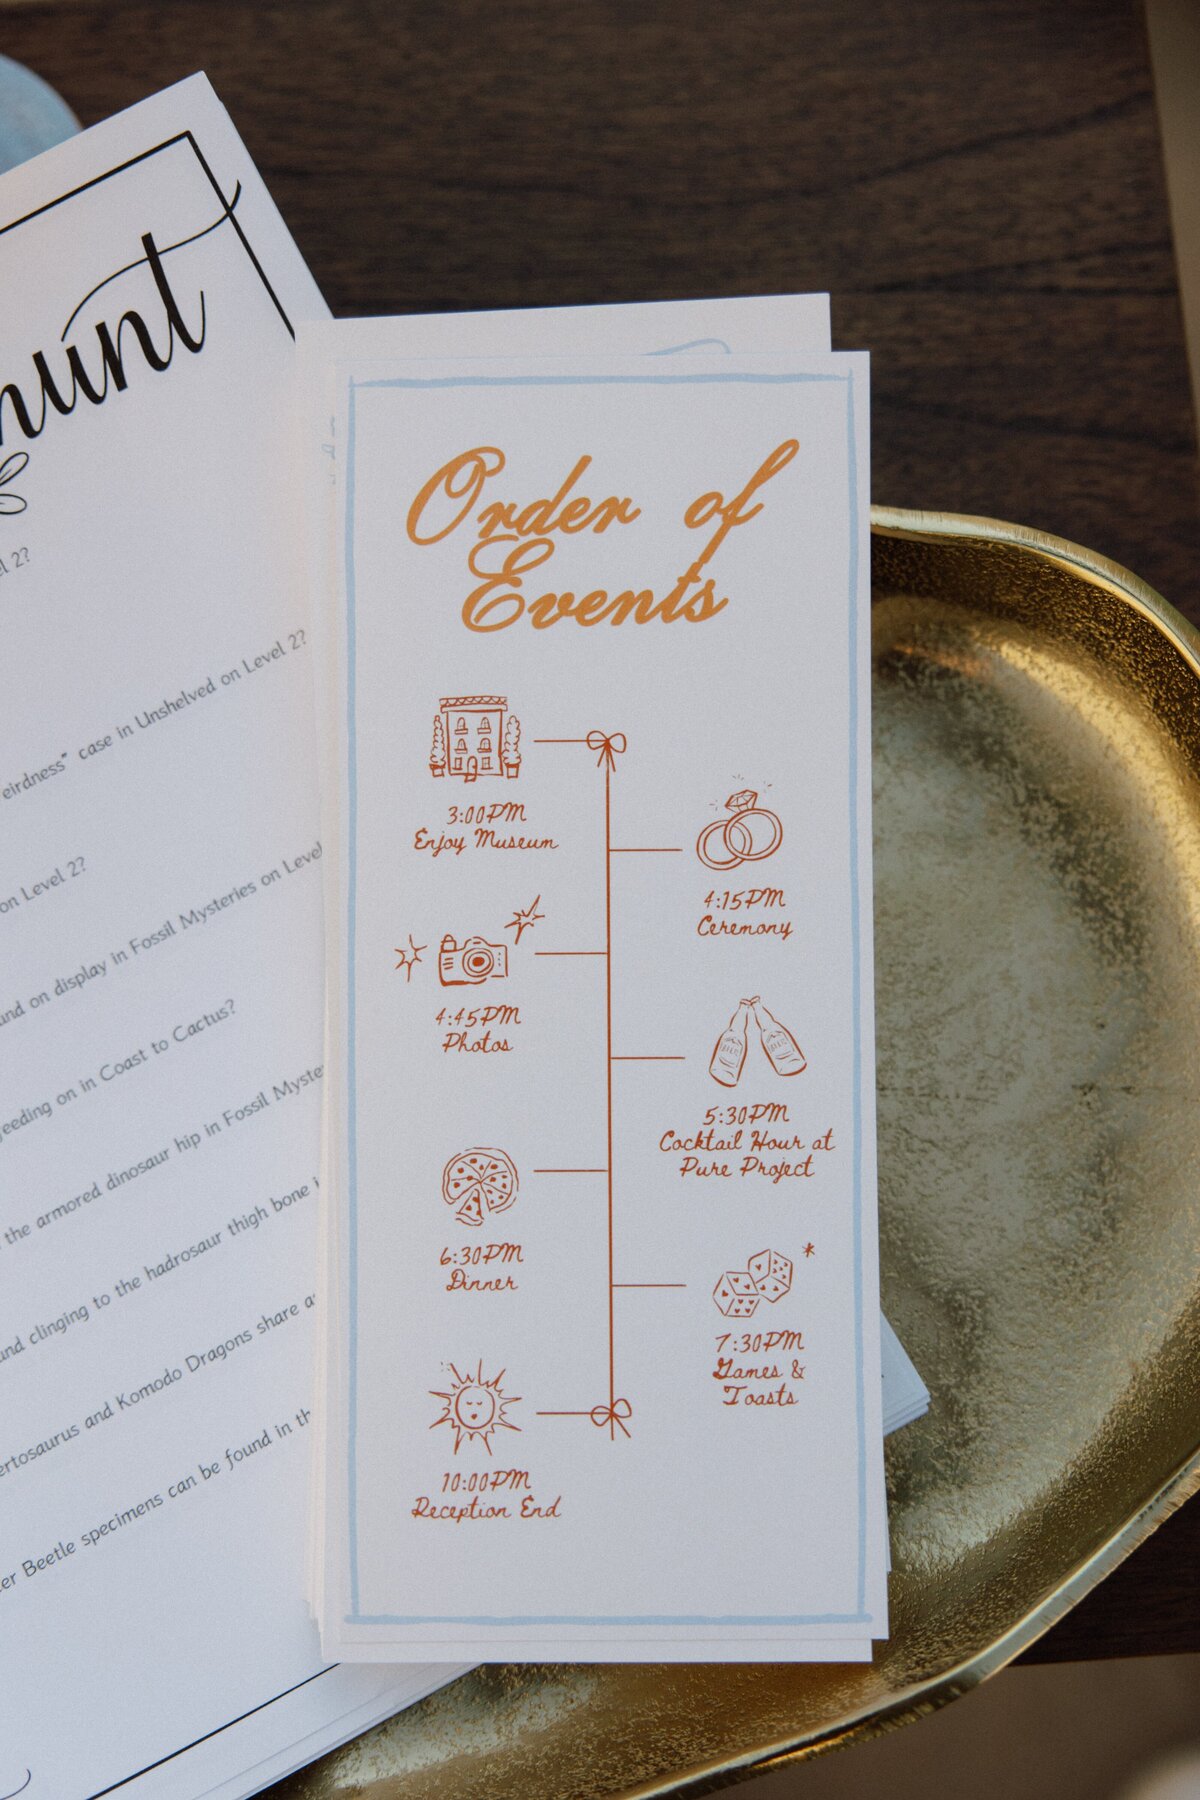 hunt
Level 2?
eirdness" case in Unshelved on Level 2?
on Level 2?
on display in Fossil Mysteries on Level
feeding on in Coast to Cactus?
the armored dinosaur hip in Fossil
clinging to the hadrosaur thigh bone
and Komodo Dragons share
Beetle specimens can be found in
Order of
Events
3:00PM
Enjoy Museum
4:15PM
Ceremony
4:45PM
Photos
BEER
BEER
5:30PM
Cocktail Hour at
Pure Project
6:30PM
Dinner
*
7:30PM
Games &
Toasts
10:00PM
Reception End